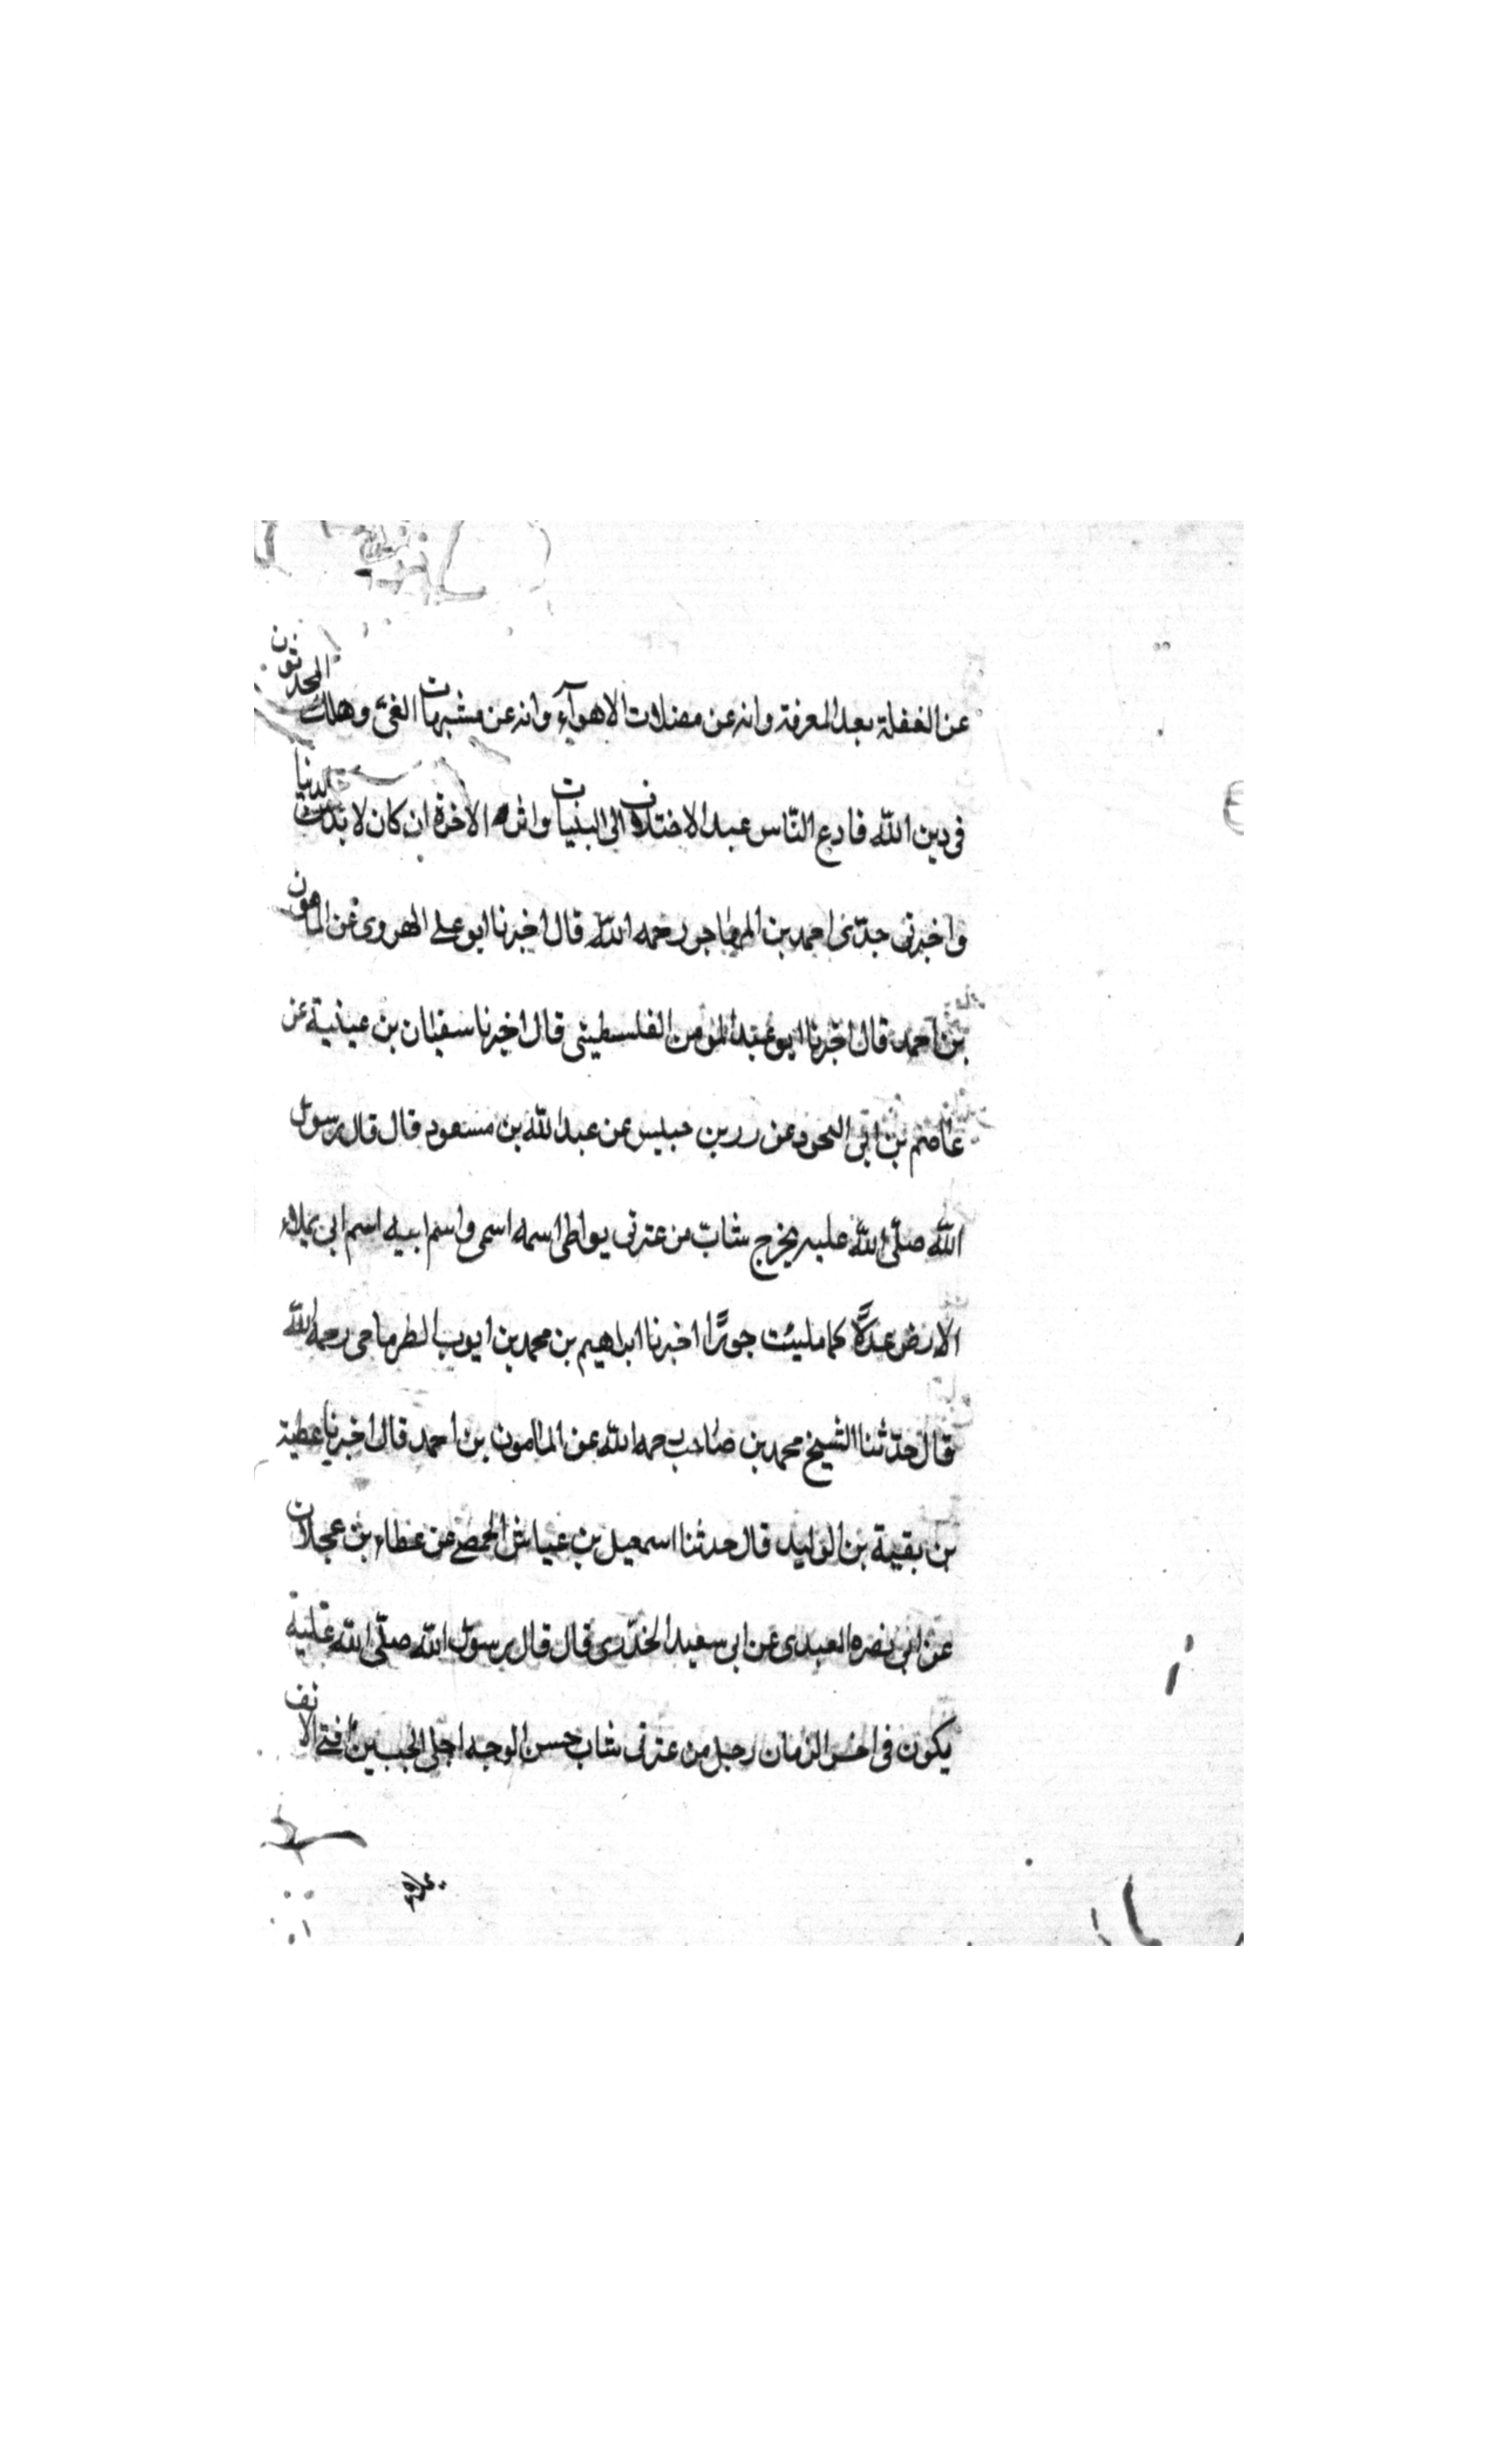 عن الغفلة بعد المعرفة وانه عن مضلات الاهوآء وانه عن مشبهات الغى وهلك المحدثون
فى دين الله فادع الناس عبد الاختلاف الى البنيات واثره الاخرة ان كان لا بد لك الدنيا
واخبرنى جدّى احمد بن المهاجر رحمه الله قال اخبرنا ابو على الهروى عن المامون
بن احمد قال اخبرنا ابو عبد المومن الفلسطينى قال اخبرنا سفيان بن عيينة عن
عاصم بن ابى النجود عن زر بن حبيس عن عبد الله بن مسعود قال قال رسول
الله صلّى الله عليه يخرج شابّ من عترتى يواطى اسمه اسمى واسم ابيه اسم ابى يملاء
الارض عدلًا كما مليئت جورًا اخبرنا ابراهيم بن محمد بن ايوب الطرماحى رحمه الله
قال حدّثنا الشيخ محمد بن صاحب رحمه الله عن المامون بن احمد قال اخبرنا عطية
بن بقية بن الوليد قال حدثنا اسمعيل بن عياش الحمصى عن عطاء بن عجلان
عن ابى نصره العبدى عن ابى سعيد الخدرى قال قال رسول الله صلّى الله عليه
يكون فى اخر الزمان رجل من عترتى شاب حسن الوجه اجلى الجبين اقنى الانف